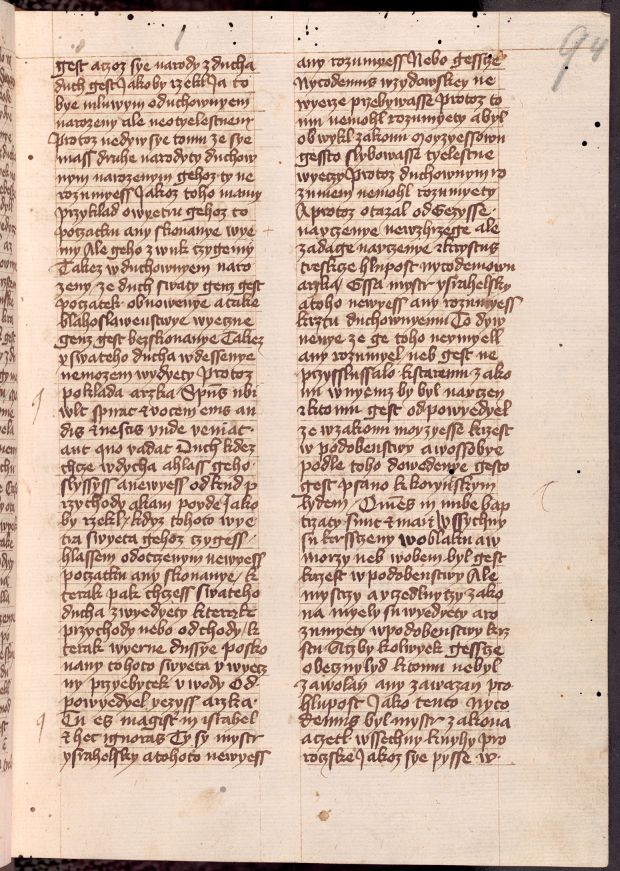 94
gest a czoz sye narody z ducha
duch gest Jakoby rzekl Ja to
bye mluwym o duchownyem
narozeny ale neotyelestnem
Protoz nedyw sye tomu ze sye
mass druhe narodyty duchow
nym narozenym gehoz ty ne
rozumyess Jakoz toho mamy
przyklad o wyetru gehoz to
poczatku any skonanye wye
my Ale geho zwuk czygemy
Takez w duchownyem naro
zeny ze duch swaty genz gest
poczatek obnowenye a take
blahoslawenstwye wyeczne
genz gest bezskonanye Takez
y swateho ducha w dessenye
nemozem wydyety Protoz
poklada arzka Spirꝰ ubi
wlt spirat et vocem eius au
dis et nescis unde veniat
aut quo vadat Duch kdez
chcze wdycha a hlass geho
slyssyss a newyess odkud p
rzychody a kam poyde Jako
by rzekl kdyz tohoto wye
tra swyeta gehoz czygess
hlassem o doczenym newyess
poczatku any skonanye k
terak pak chczess swateho
ducha zwyedyety kterakz
przychody nebo odchody k
terak wyerne dussye posko
nany tohoto swyeta v wyecz
ny przyebytek v wody Od
powyedyel yezyss arzka
Tu es magist in israhel
et hec ignoras Ty sy mystr
ysrahelsky a tohoto newyess
any rozumyess Nebo gesscze
Nycodemus w zydowskey ne
wyerze przebywasse Protoz to
mu nemohl rozumyety a byl
obwykl zakonu moyzyessowu
gessto slybowasse tyelestne
wyeczy Protoz duchownym ro
zumem nemohl rozumyety
A protoz otazal od Gezysse
nauczenye newzhrzege ale
zadage nauczenye a krystus
treskcze hlupost nycodemowu
arzka Essa mystr ysrahelsky
a toho newyess any rozumyess
krztu duchownyemu To dyw
nenye ze ge toho neumyell
any rozumyel neb gest ne
przysslussalo k staremu zako
nu w nyemz by byl nauczen
et k tomu gest odpowyedyel
ze w zakonu moyzyesse krzest
w podobenstwy a w ossobye
podle toho dowedenye gesto
gest psano k korynskym
lydem Omēs in nube bap
tizati sunt et mari Wssychny
su krssczeny w oblaku a w
morzy neb w obem byl gest
krzest w podobenstwy Ale
mystrzy a yzedlnyczy zako
na myely su wyedyety a ro
zumyety w podobenstwy krz
stu A czby kolwyek gesscze
obeczny lyd k tomu nebyl
zawolan any zawazan pro
hlupost Jako tento Nyco
demus byl mystr zakona
a czetl wssechny knyhy pro
roczske Jakoz sye pysse w